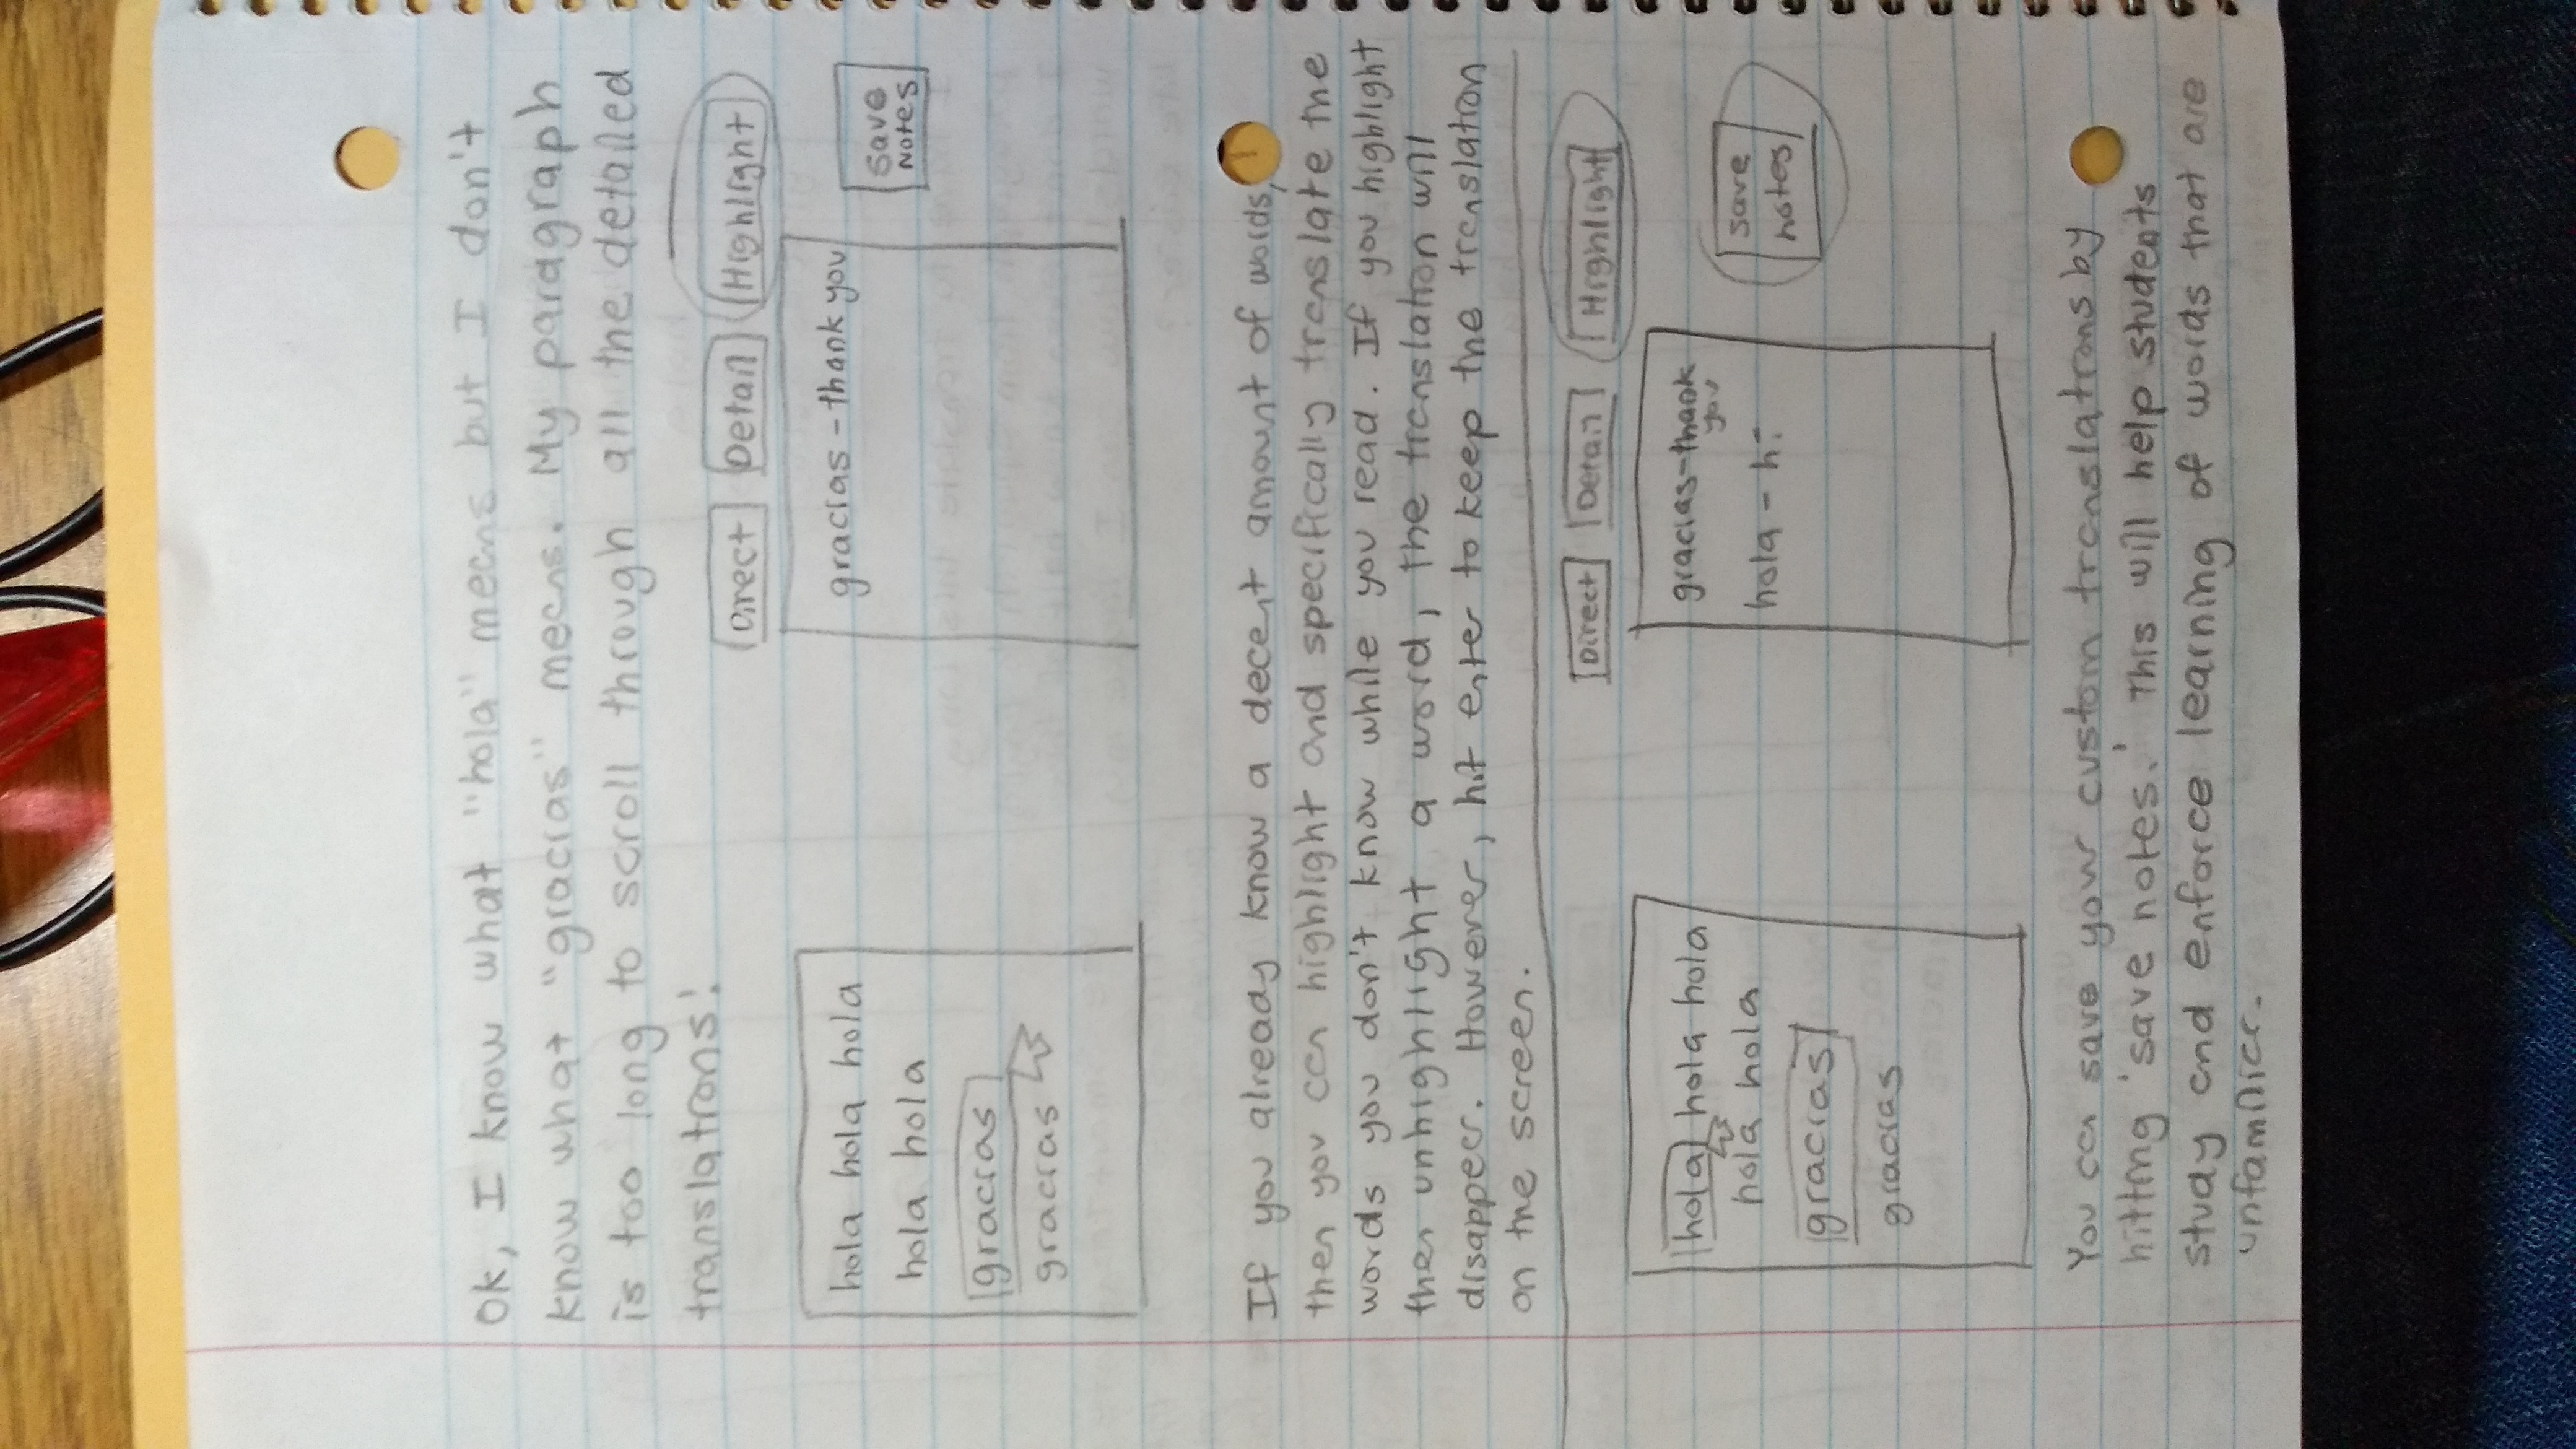 Ok, I know what "hola" means but I don't
know what "gracias" means. My paragraph
is too long to scroll through all the detailed
translations!
Direct Detail Highlight
hola hola hola
hola hola
gracias
gracias
gracias - thank you
save
Notes
If you already know a decent amount of words,
then you can highlight and specifically translate the
words you don't know while you read. If you highlight
then unhighlight a word, the translation will
disappear. However, hit enter to keep the translation
on the screen.
Direct Detail Highlight
hola hola hola
hola hola
gracias
gracias
gracias - thank
you
hola - hi
save
notes
You can save your custom translations by
hitting 'save notes.' This will help students
study and enforce learning of words that are
unfamiliar.